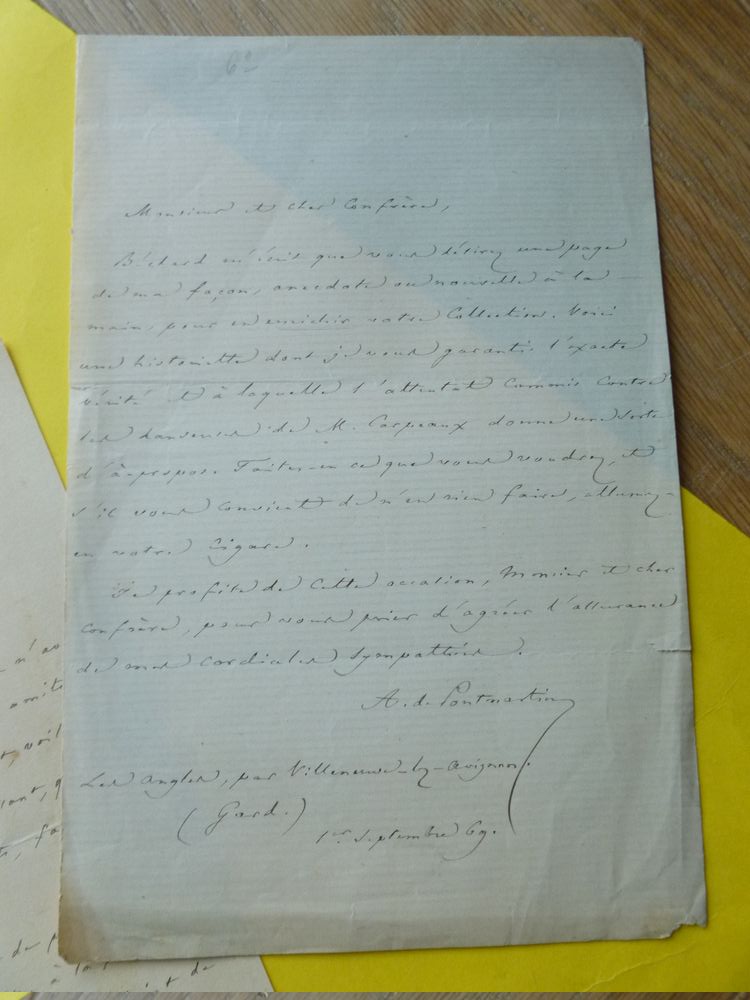 6º
Monsieur et cher Confrère,
Béchard m'écrit que vous désirez une page
de ma façon, anecdote ou nouvelle à la
main, pour en enrichir votre Collection. Voici
une historiette dont je vous garantis l'exacte
vérité et à laquelle l'attentat commis contre
les danseuses de M. Carpeaux donne une sorte
d'à-propos. Faites-en ce que vous voudrez, et
s'il vous convient de n'en rien faire, allumez-
en votre cigare.
Je profite de cette occasion, Monsieur et cher
confrère, pour vous prier d'agréer l'assurance
de mes cordiales sympathies.
A. de Pontmartin
Les Angles, par Villeneuve-lez-Avignon.
(Gard.)
1er Septembre 69.
n'as
amité
, voil
ant, q
, fa
de
à la
de